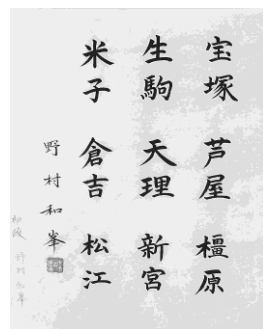 宝塚 芦屋 橿原
生駒 天理 新宮
米子 倉吉 松江
野村和峯